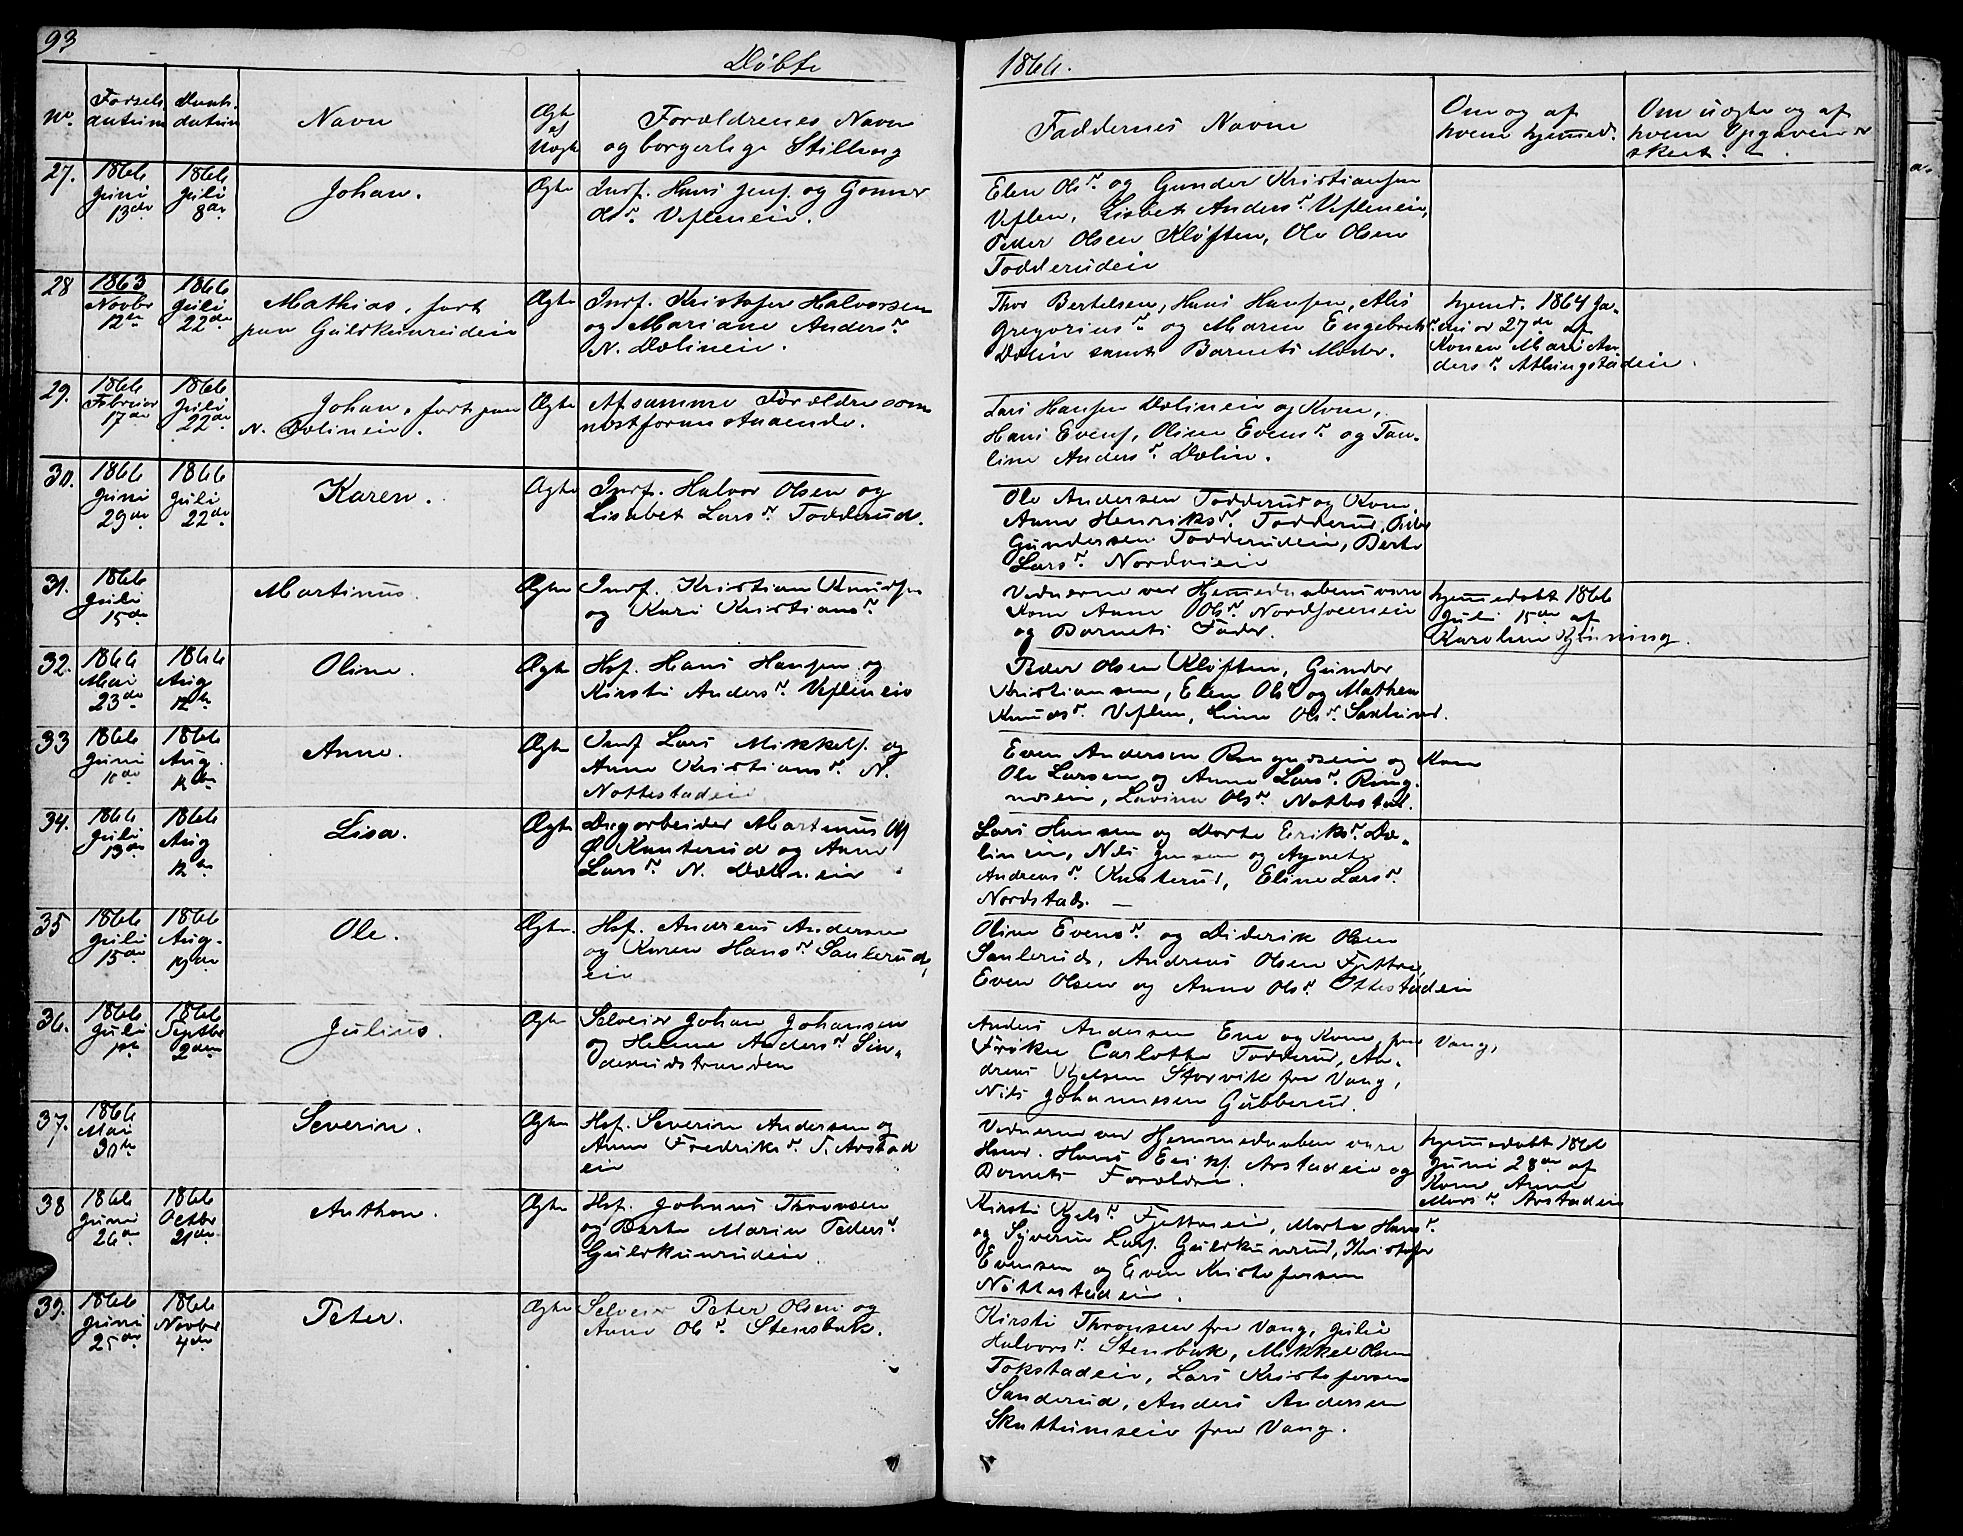 93
Døbte
1866.
No.
Førsels datum
Daab. datum
Navn
Ægte el Uægte
Forældrenes Navn og borgerlige Stilling
Faddernes Navne
Om og af hvem hjemmed.
Om uægte og af hvem Opgaven er skeet.
27.
1866 Juni 13de
1866 Juli 8de
Johan.
Ægte
Inds. Hans Jens. og Gomer
Olsr. Vefleneie.
Elen Olsr. og Gunder Kristiansen
Veflen, Lisbet Andersr. Vefleneie,
Peder Olsen Kløften, Ole Olsen
Todderudeie
28
1863 Novbr 12te
1866 Juli 22de
Mathias, født
paa Guldkunrudeie
Ægte
Inds. Kristofer Halvorsen
og Mariane Andersr.
N. Dælineie.
Thor Bertelsen, Hans Hansen, Alis
Gregoriusr. og Maren Engebretsr.
Dælin samt Barnets Moder.
hjemd. 1864 Ja-
nuar 27de af
Konen Mari An
dersr. Athingstadeie.
29.
1866 Februar 17de
1866 Juli 22de
Johan, født paa
N. Dælineie.
Ægte
Af samme Forældre som
næstforanstaaende.
Lars Hansen Dælineie og Kone,
Hans Evens., Oline Evensr. og Pau-
line Andersr. Dælin.
30.
1866 Juni 29de
1866 Juli 22de
Karen.
Ægte
Inds. Halvor Olsen og
Lisabet Larsr. Todderud.
Ole Andersen Todderud og Kone
Anne Henriksr. Todderud, Peder
Gundersen Todderudeie, Berte
Larsr. Nordvieie
31.
1866 Juli 15de
Martinus.
Ægte
Inds. Kristian Knudsen
og Kari Kristiansr.
Vidnerne ved Hjemmedaaben vare
Kone Anne Olsr. Nordhoveneie
og Barnets Fader.
hjemmedøbt 1866
Juli 15de af
Karoline Kjønning.
32.
1866 Mai 23de
1866 Aug 12te
Oline.
Ægte
Hsf. Hans Hansen og
Kirsti Andersr. Vefleneie
Peder Olsen Kløften, Gunder
Kristiansen, Elen Olsr. og Mathea
Knudsr. Veflen, Line Olsr. Saxlund.
33
1866 Juni 10de
1866 Aug. 12te
Anne.
Ægte
Inds Lars Mikkels. og
Anne Kristiansr. N.
Nottestadeie
Even Andersen Ringnæseie og Kone
Ole Larsen og Anne Larsr. Ring-
næseie, Lovina Olsr. Nottestad.
34.
1866 Juli 13de
1866 Aug 12te
Lisa.
Ægte
Dagarbeider Martinus Ols
Ø. Kanterud og Anne
Larsr. N. Dælineie.
Lars Hansen og Dorte Eriksr. Dæ-
lineie, Nils Jensen og Agnete
Andreasr. Kanterud, Eline Larsr.
Nordstad.
35
1866 Juli 15de
1866 Aug. 19de
Ole.
Ægte.
Hsf. Andreas Andersen
og Karen Hansr. Saulerud,
eie
Oline Evensr. og Diderik Olsen
Saulerud, Andreas Olsen Fjettre,
Even Olsen og Anne Olsr. Ottestadeie
36.
1866 Juli 1ste
1866 Septbr 2den
Julius.
Ægte
Selveier Johan Johansen
og Helene Andersr. Sin-
derudstranden
Anders Andersen Ene og Kone fra Vang,
Frøken Carlotte Todderud, An-
dreas Kjelsen Storvik fra Vang,
Nils Johannesen Gubberud.
37.
1866 Mai 30te
Severin.
Ægte
Hsf. Severin Andersen og
Anne Fredriksr. S. Arstad
eie
Vidnerne ved Hjemmedaaben vare
Hmd. Hans Eriks. Arstadeie og
Barnets Forældre.
hjemmedøbt 1866
Juni 28de af
Kone Anne
Marsr. Arstadeie
38
1866 Juni 26de
1866 Octbr 21de
Anthon.
Ægte
Hsf. Johans Thronsen
og Berte Marie Pedersr.
Guldkunrudeie.
Kirsti Kjelsr. Fjettreeie, Marte Hansr.
og Syverin Lars. Guldkunrud, Kristofer
Evensen og Even Kristofersen
Nøttestadeie.
39.
1866 Juni 25de
1866 Novbr 4de
Peter.
Ægte
Selveier Peter Olsen og
Anne Olsr. Stensbak.
Kirsti Thronsen fra Vang, Julie
Halvorsr. Stensbak, Mikkel Olsen
Tokstadeie, Lars Kristofersen
Sanderud, Anders Andersen
Skattumseie fra Vang.